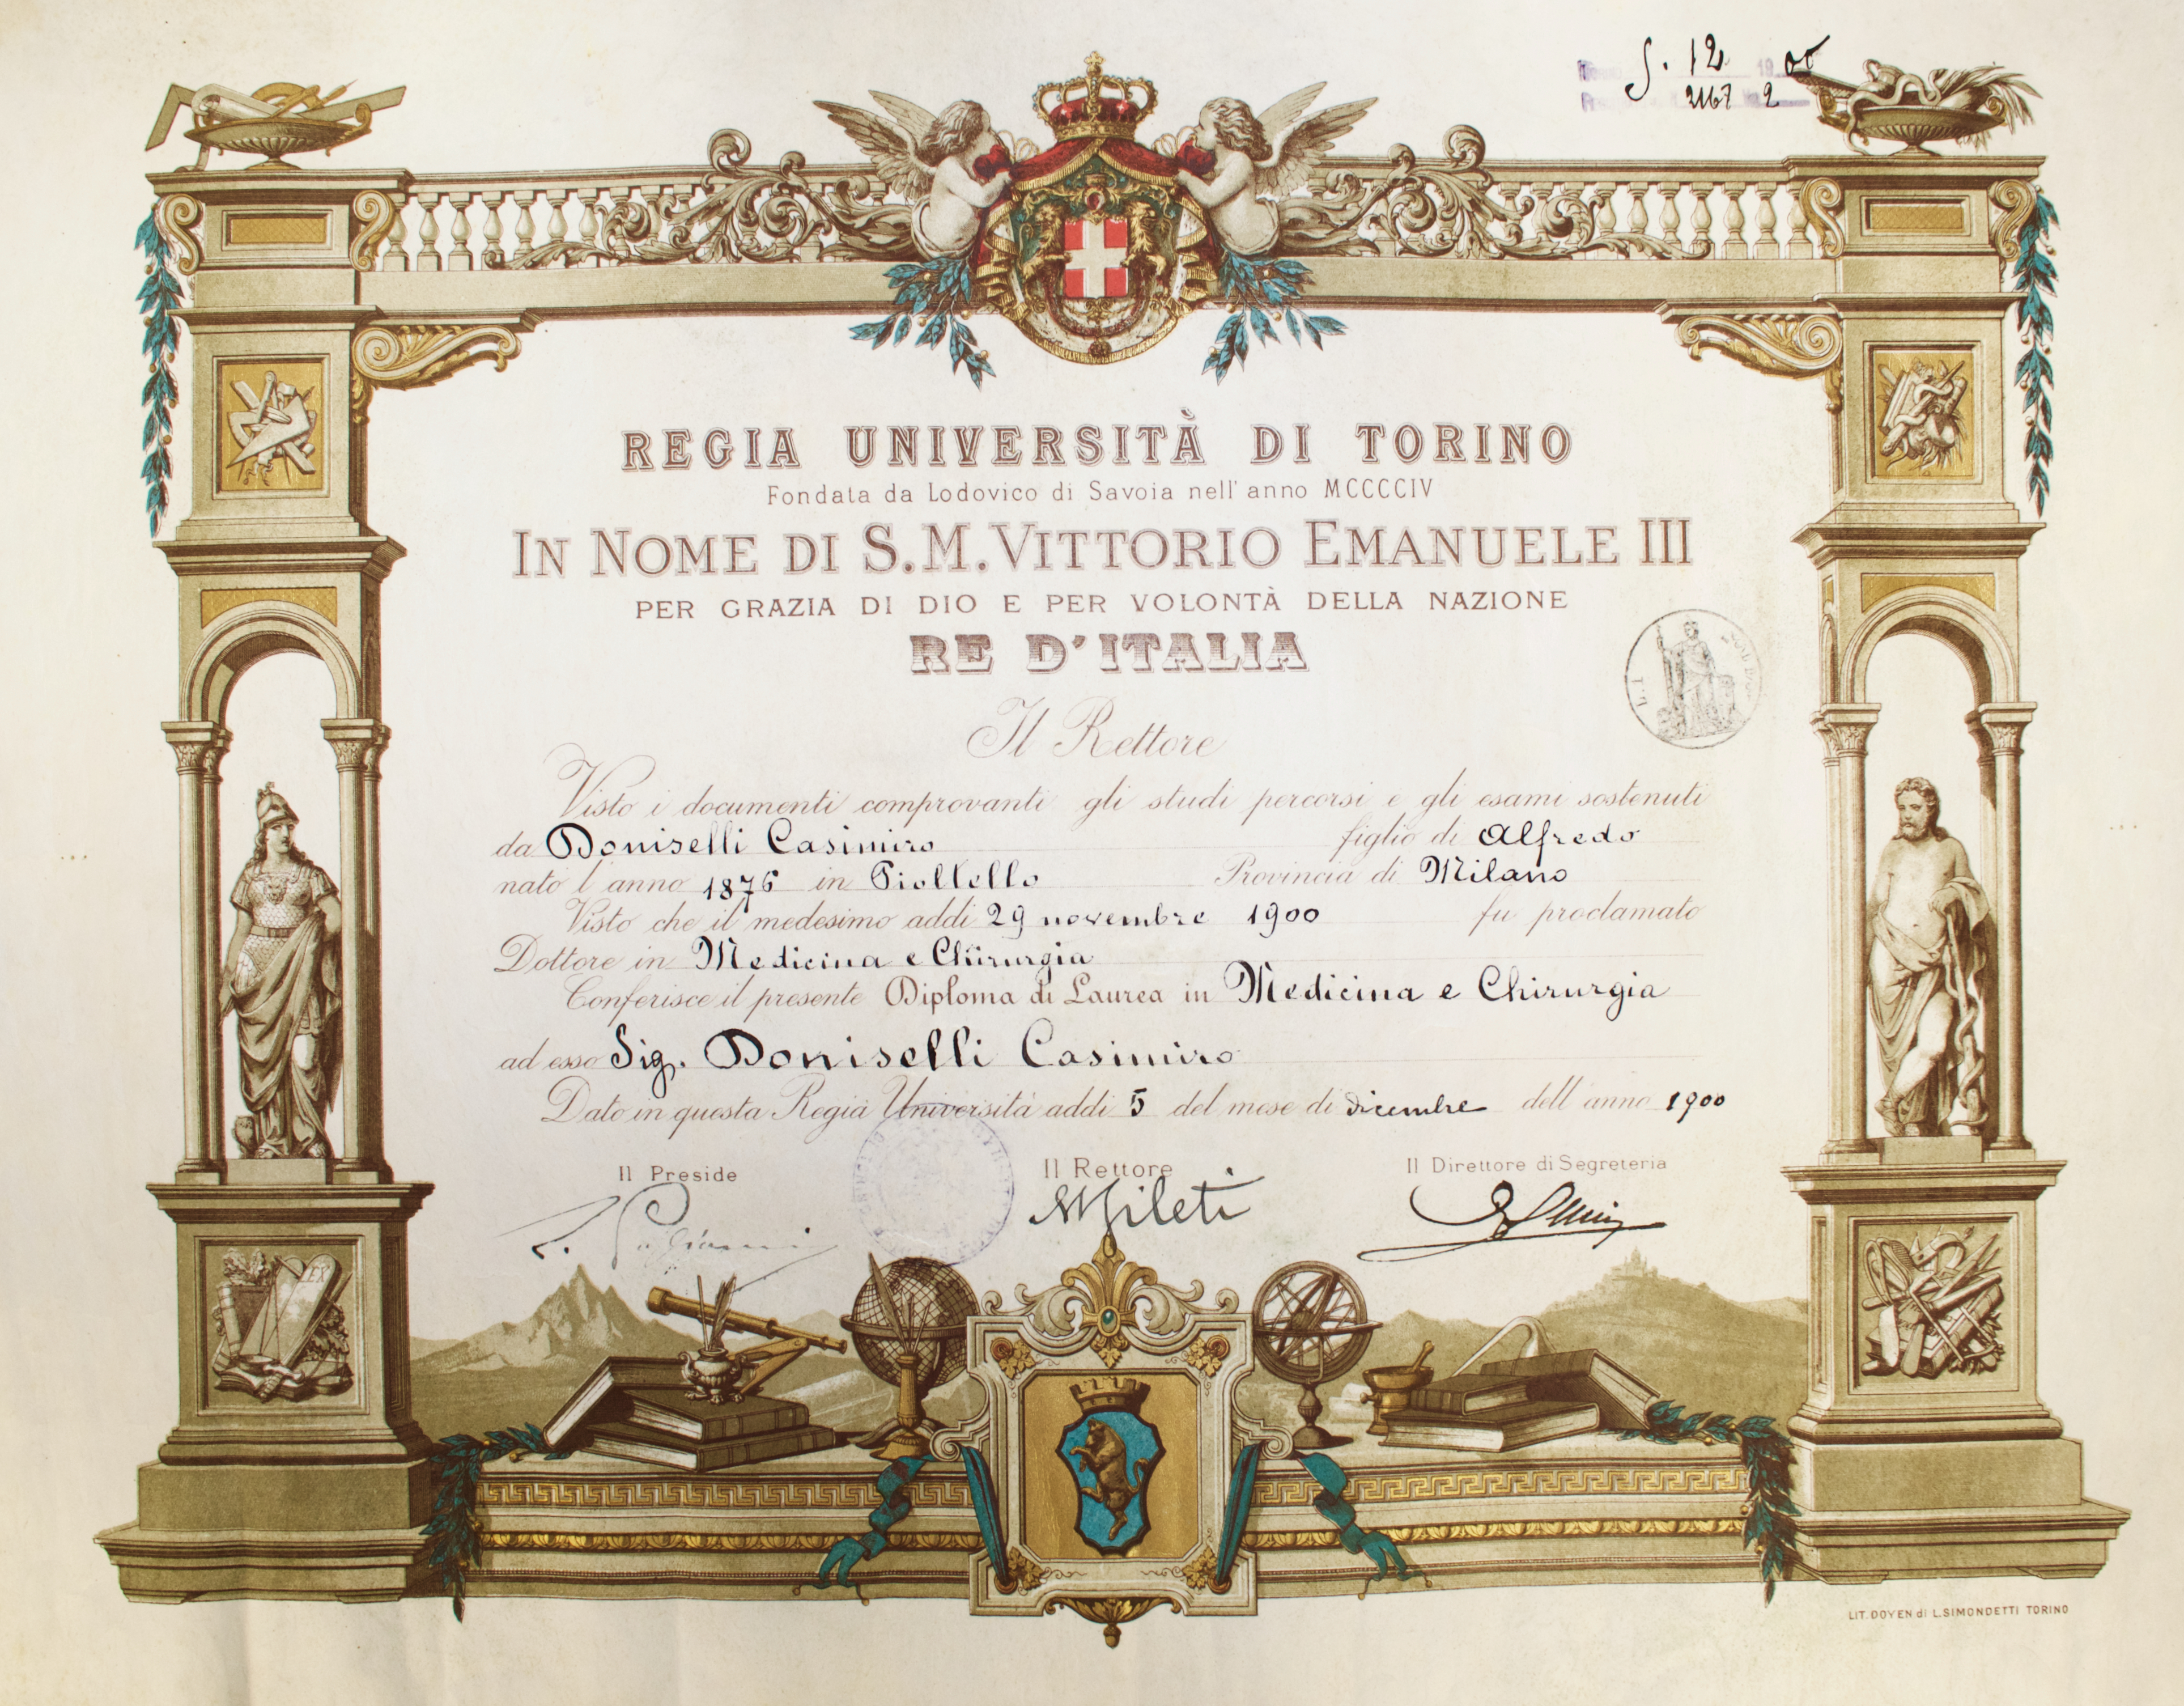 S. 12 19 00
2167 2
REGIA UNIVERSITÀ DI TORINO
Fondata da Lodovico di Savoia nell' anno MCCCCIV
IN NOME DI S.M. VITTORIO EMANUELE III
PER GRAZIA DI DIO E PER VOLONTÀ DELLA NAZIONE
RE D'ITALIA
Il Rettore
Visto i documenti comprovanti gli studi percorsi e gli esami sostenuti
da Doniselli Casimiro figlio di Alfredo
nato l'anno 1876 in Pioltello Provincia di Milano
Visto che il medesimo addì 29 novembre 1900 fu proclamato
Dottore in Medicina e Chirurgia
Conferisce il presente Diploma di Laurea in Medicina e Chirurgia
ad esso Sig. Doniselli Casimiro
Dato in questa Regia Università addì 5 del mese di dicembre dell'anno 1900
Il Preside Il Rettore Il Direttore di Segreteria
L. Pagliani Mileti
LEX
LIT. DOYEN di L. SIMONDETTI TORINO